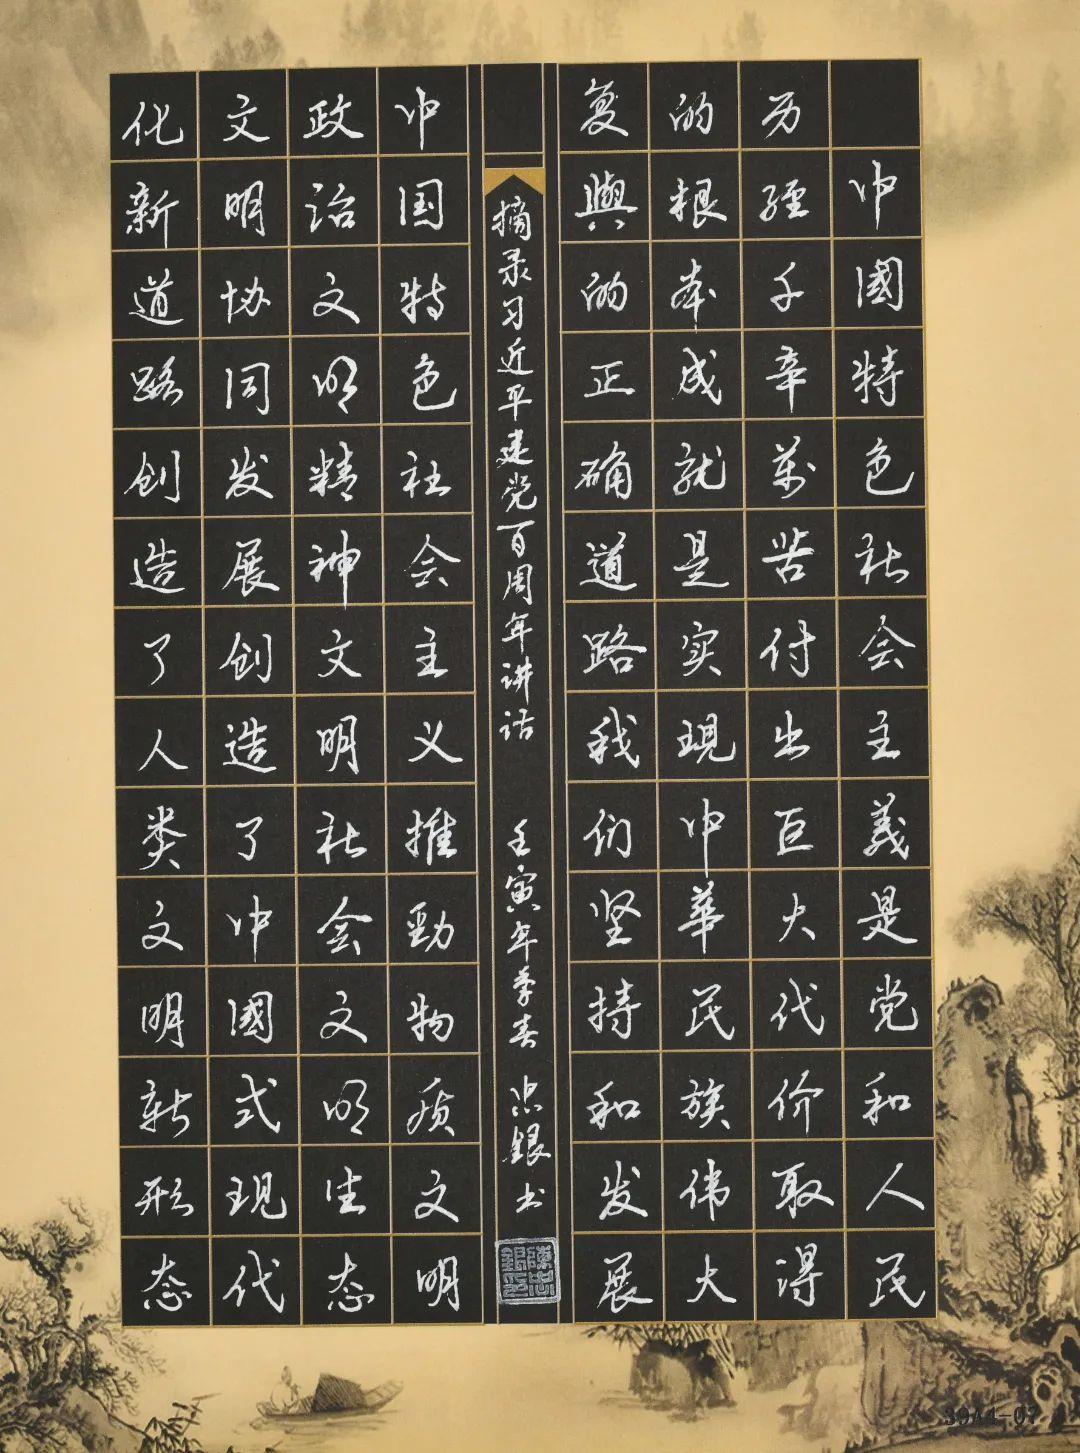 中國特色社会主義是党和人民
历經千辛萬苦付出巨大代价取得
的根本成就是实現中華民族伟大
复興的正确道路我们坚持和发展
摘录习近平建党百周年讲话 壬寅年季春 忠銀书
陳忠銀印
中国特色社会主义推動物质文明
政治文明精神文明社会文明生态
文明协同发展创造了中國式現代
化新道路创造了人类文明新形态
3944-07